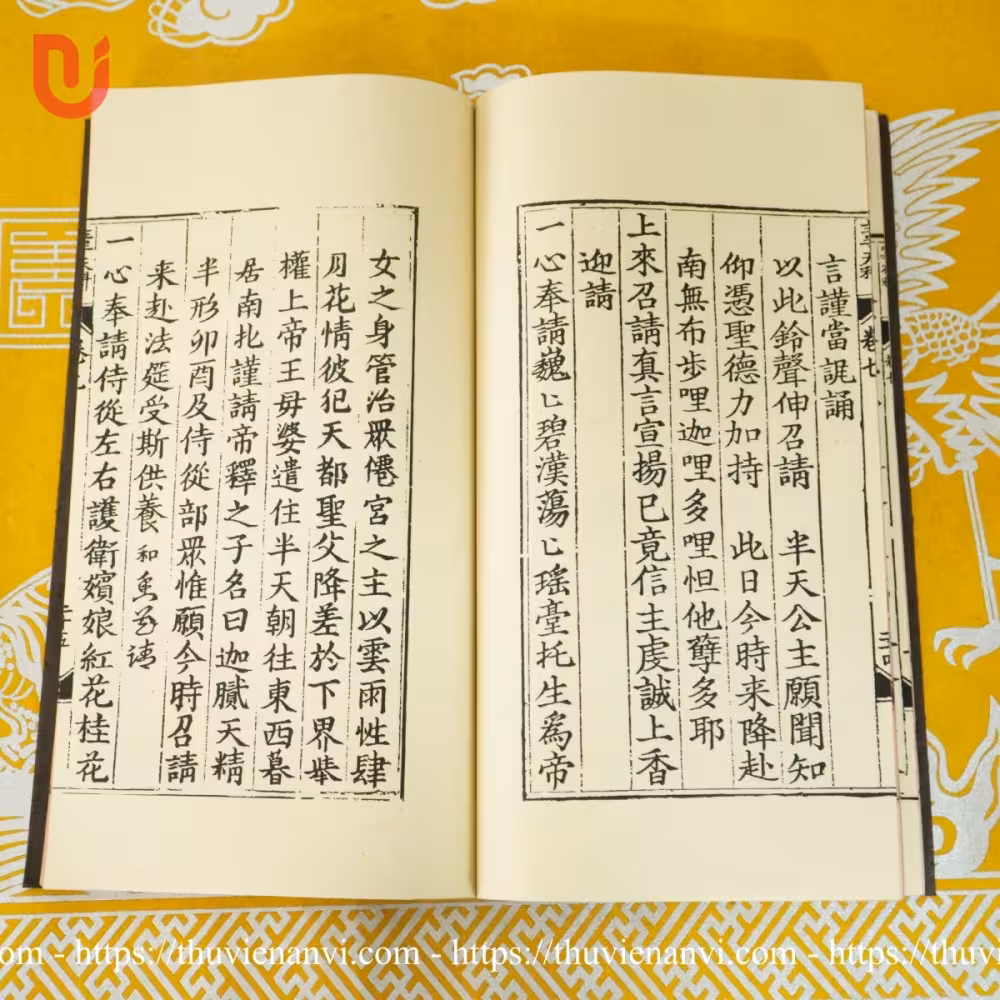 言謹當誢誦
以此鈴聲伸召請　半天公主願聞知
仰憑聖德力加持　此日今時来降赴
南無布歩哩迦哩多哩怛他孽多耶
上來召請真言宣揚已竟信主虔誠上香
迎請
一心奉請巍〻碧漢蕩〻瑤臺托生爲帝
女之身管治眾僊宮之主以雲雨性肆
月花情彼犯天都聖父降差於下界𠦒
權上帝王母婆遣住半天朝往東西暮
居南北謹請帝釋之子名曰迦膩天精
半形卯酉及侍從部眾惟願今時召請
来赴法筵受斯供養
一心奉請侍從左右護衛嬪娘紅花桂花
卷七
https://thuvienanvi.com - https://thuvienanvi.com